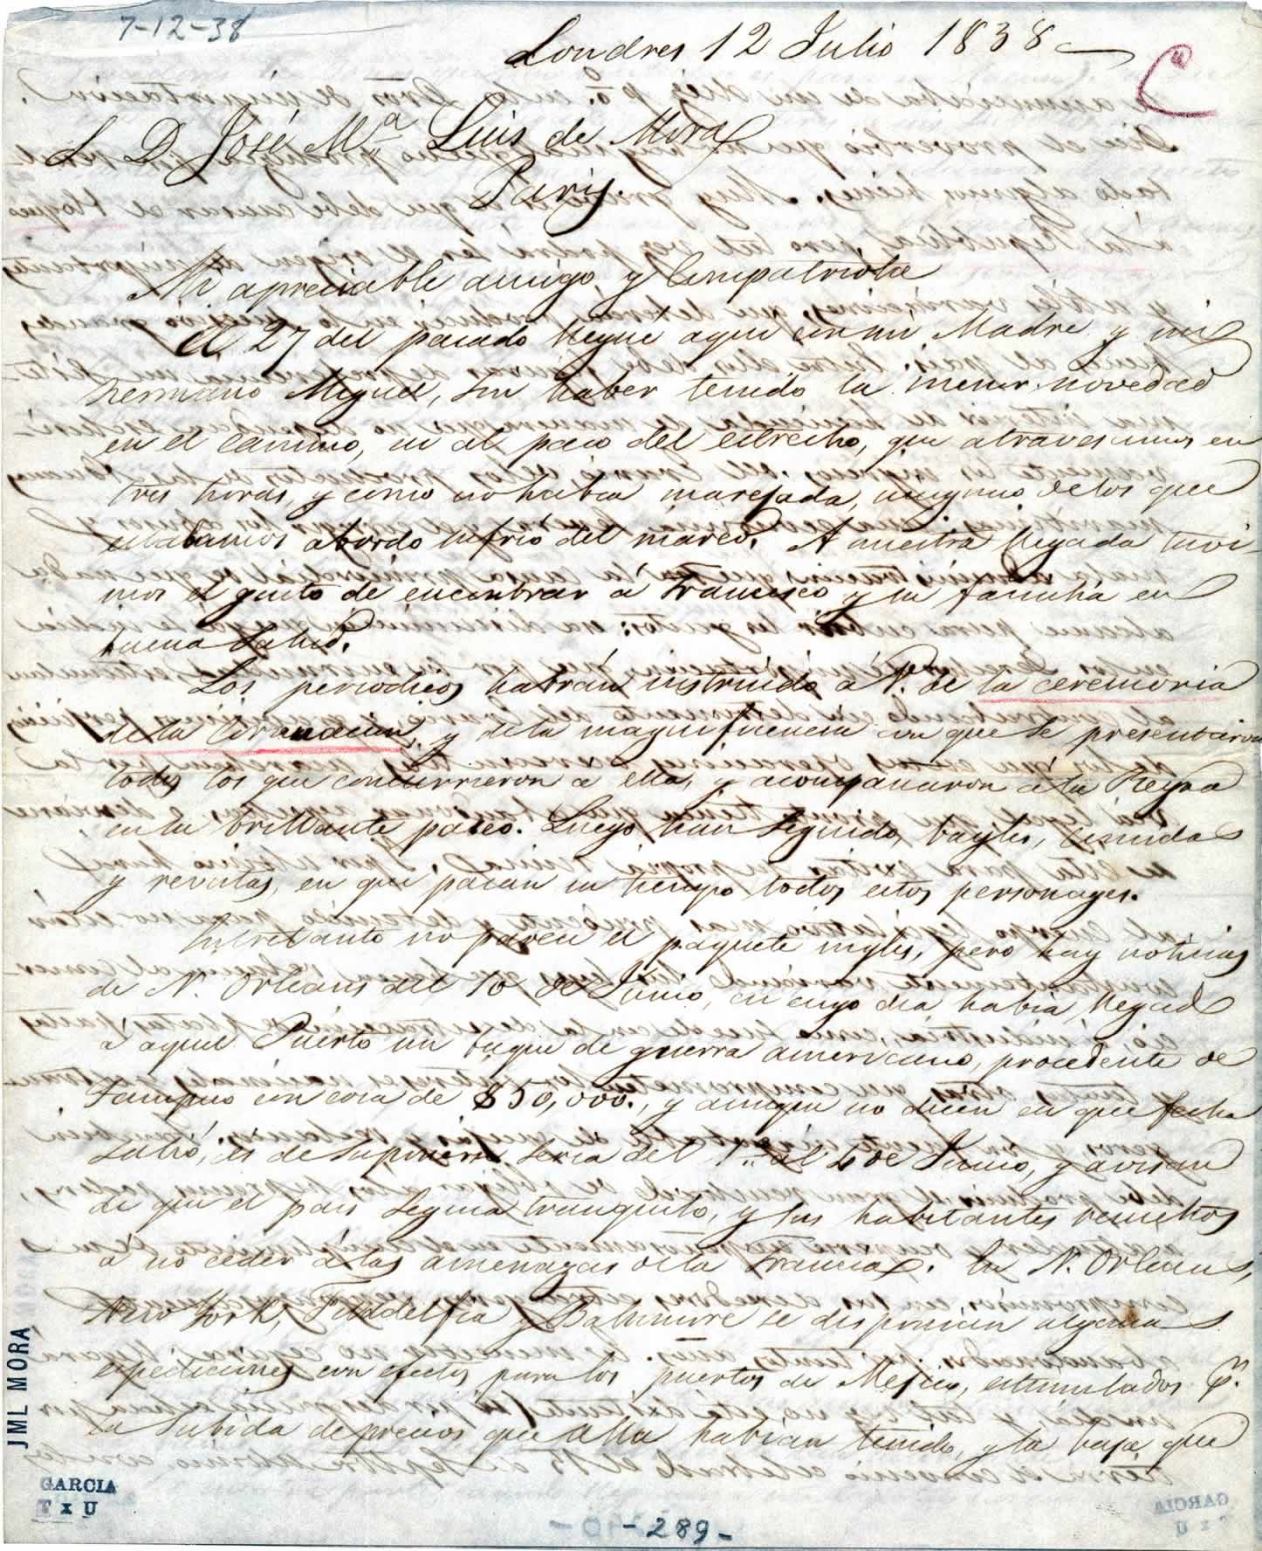 7-12-38
Londres 12 Julio 1838
S. D. José Ma. Luis de Mora
Paris.
Mi apreciable amigo y Compatriota
El 27 del pasado llegue aqui con mi Madre y mi
hermano Miguel, sin haber tenido la menor novedad
en el camino, ni al paso del estrecho, que atravesamos en
tres horas, y como no habia marejada, ninguno de los que
estabamos abordo sufrió del mareo. A nuestra llegada tuvi-
mos el gusto de encontrar a Francisco y su familia en
buena salud.
Los periodicos habrán instruido a V. de la ceremonia
de la Coronacion, y de la magnificencia con que se presentaron
todos los que concurrieron a ella, y acompañaron a la Reyna
en su brillante paseo. Luego han seguido, bayles, comidas
y revistas, en que pasan su tiempo todos estos personages.
Entretanto no parece el paquete ingles, pero hay noticias
de N. Orleans del 10 de Junio, en cuyo dia habia llegado
a aquel Puerto un buque de guerra americano, procedente de
Tampico con cosa de $50,000., y aunque no dicen en que fecha
salió, es de suponerse seria del 1º al 4 de Junio, y avisan
de que el pais seguia tranquilo, y sus habitantes resueltos
a no ceder a las amenazas de la Francia. En N. Orleans,
New York, Filadelfia y Baltimore se disponian algunas
espediciones con efectos para los puertos de Mejico, estimulados p.
la subida de precios que alla habian tenido, y la baja que
JML MORA
GARCIA
T x U
-289-